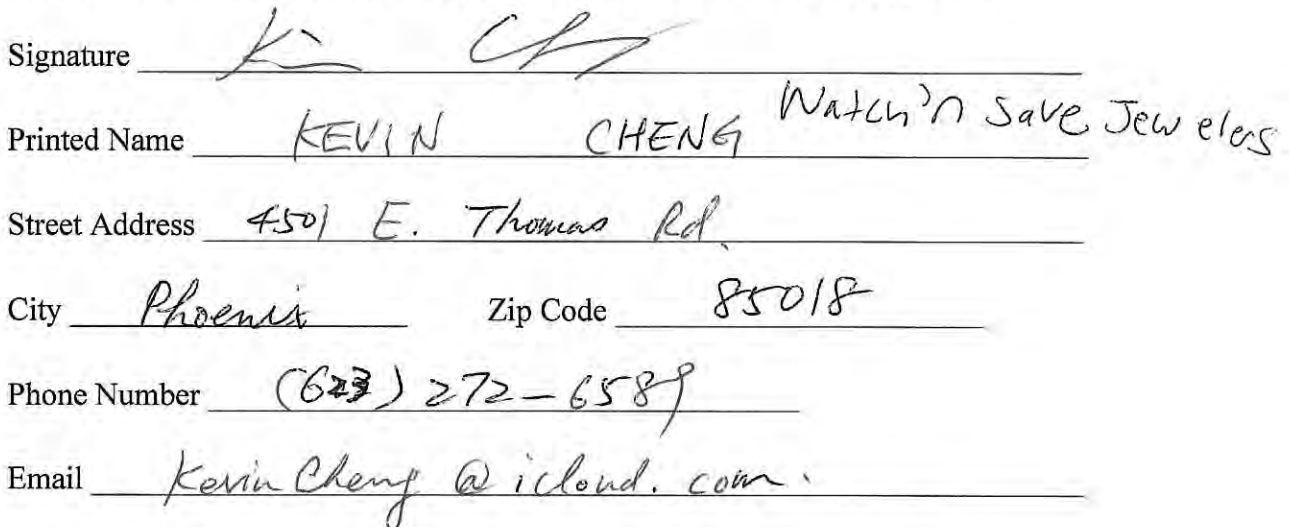 Signature
Printed Name KEVIN CHENG Watch'n Save Jewelers
Street Address 4501 E. Thomas Rd.
City Phoenix Zip Code 85018
Phone Number (623) 272-6589
Email KevinCheng@icloud.com.